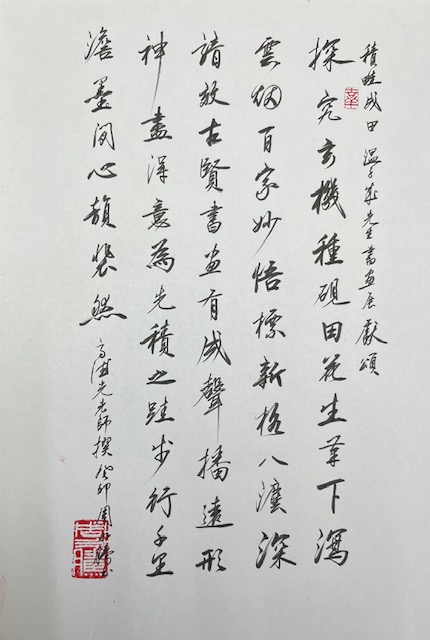 積畦成田 溫子華先生書畫展獻頌
探究玄機種硯田花生筆下瀉
雲烟百家妙悟標新格八灋深
諳效古賢書畫有成聲播遠形
神盡得意為先積之跬步行千里
澹墨閑心韻裴然
老師撰 癸卯周